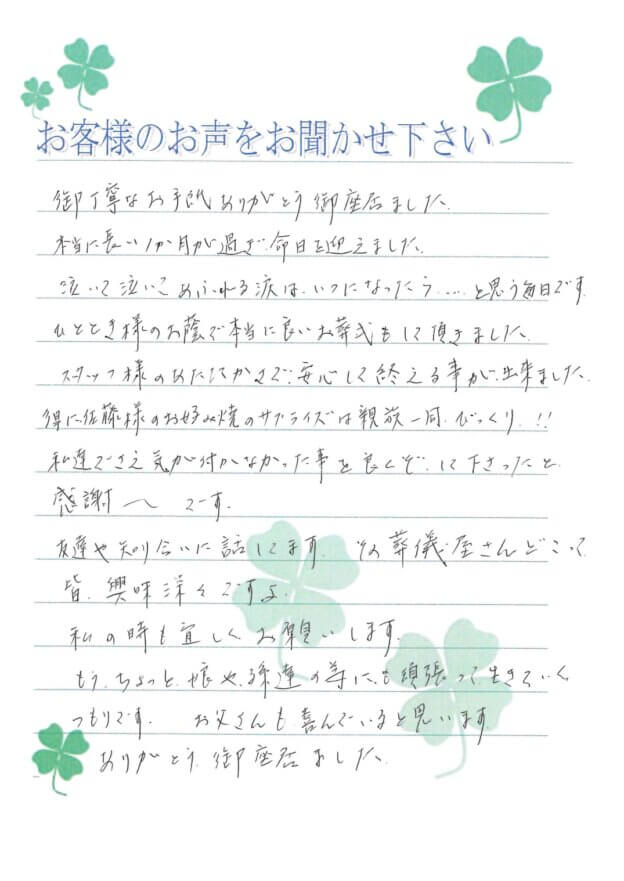 お客様のお声をお聞かせ下さい
御丁寧なお手紙ありがとう御座居ました。
本当に長い1か月が過ぎ、命日を迎えました。
泣いて泣いてあふれる涙は、いつになったら……と思う毎日です。
ひととき様のお蔭で本当に良いお葬式もして頂きました。
スタッフ様のあたたかさで、安心して終える事が、出来ました。
得に佐藤様のお好み焼のサプライズは親族一同、びっくり、!!
私達でさえ気が付かなかった事を良くぞ、して下さったと、
感謝〜です。
友達や知り合いに話してます。その葬儀屋さんどこって、
皆、興味深々ですよ。
私の時も宜しくお願いします。
もう、ちょっと、娘や、孫達の為にも頑張って、生きていく
つもりです。お父さんも喜んでいると思います
ありがとう、御座居ました。